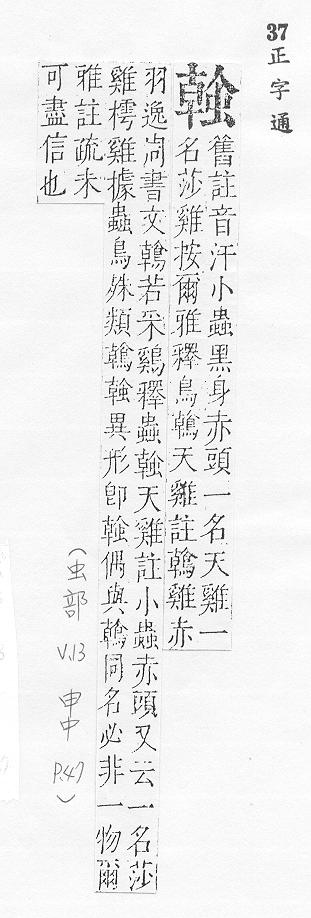 37正字通
螒
舊註音汗小蟲黑身赤頭一名天雞一
名莎雞按爾雅釋鳥鶾天雞註鶾雞赤
羽逸周書文鶾若采鷄釋蟲螒天雞註小蟲赤頭又云一名莎
雞樗雞據蟲鳥殊類鶾螒異形卽螒偶與鶾同名必非一物爾
雅註疏未
可盡信也
（虫部 V.13 申中 P.47）